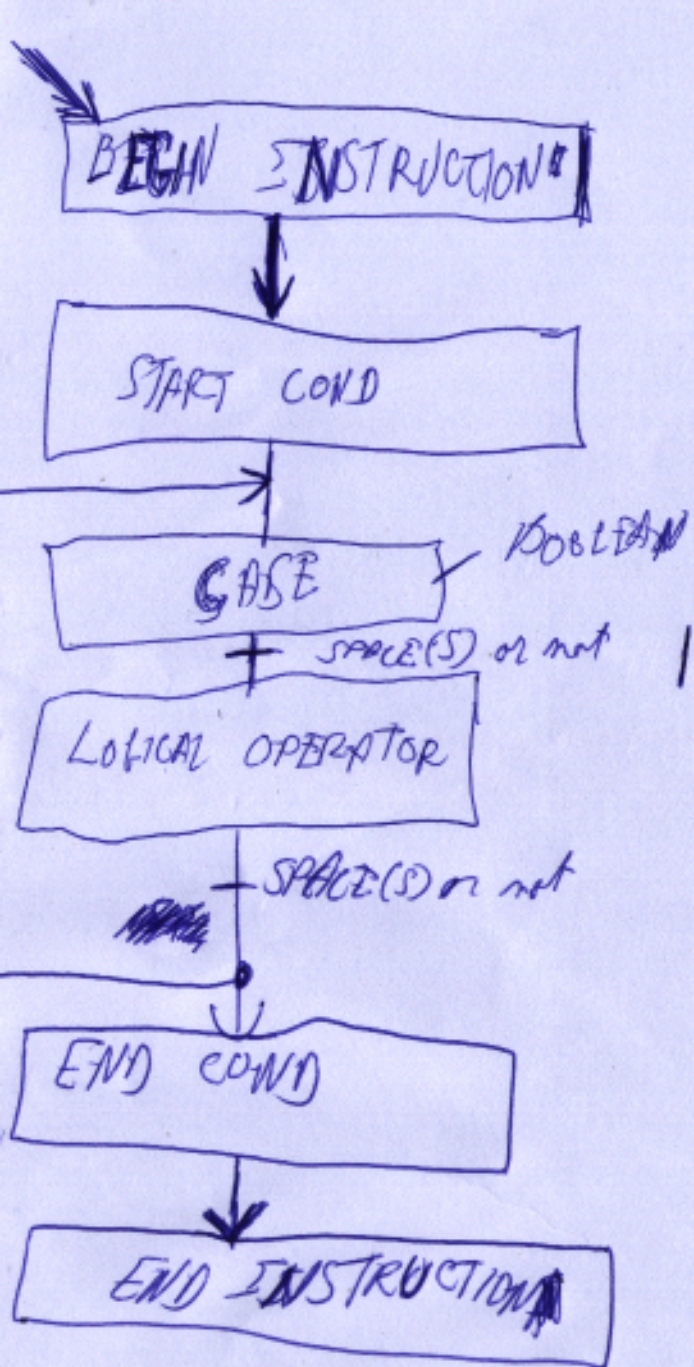 BEGIN INSTRUCTION
START COND
CASE
BOOLEAN
SPACE(S) or not
LOGICAL OPERATOR
SPACE(S) or not
END COND
END INSTRUCTION